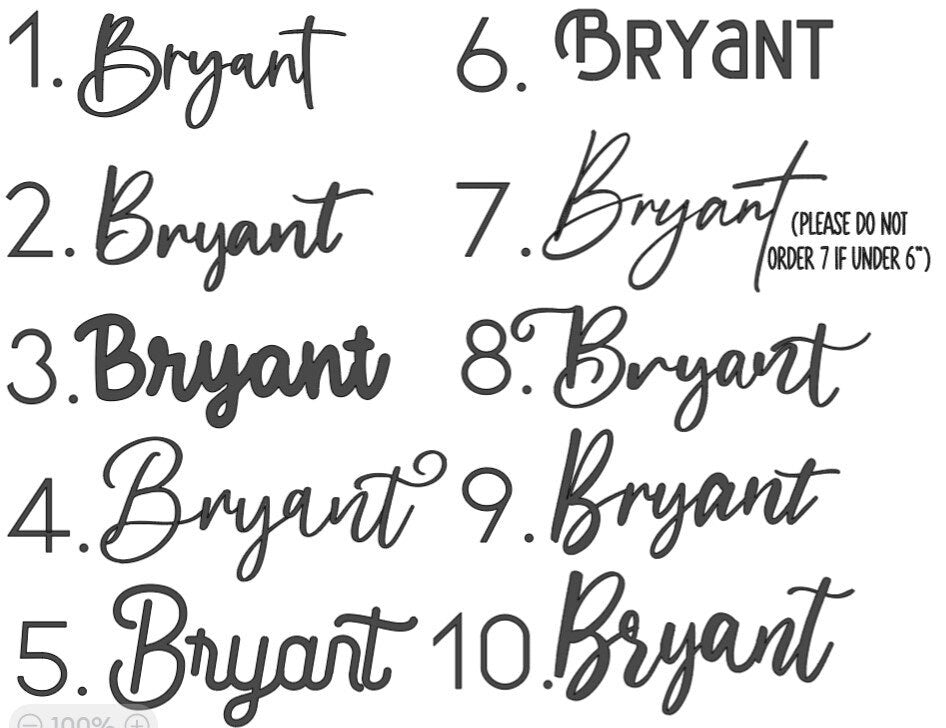 1. Bryant
2. Bryant
3. Bryant
4. Bryant
5. Bryant
6. BRYaNT
7. Bryant
(PLEASE DO NOT
ORDER 7 IF UNDER 6")
8. Bryant
9. Bryant
10. Bryant
100%